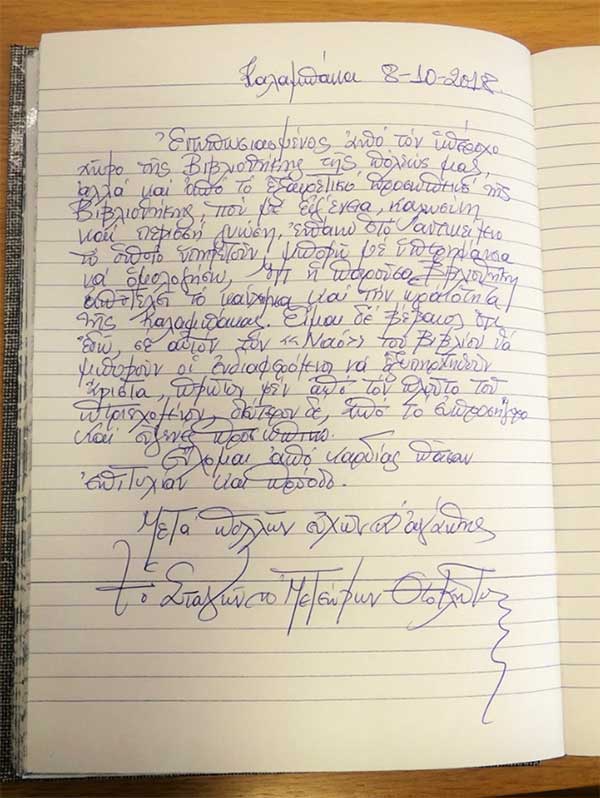 Καλαμπάκα 8-10-2018.
Ἐντυπωσιασμένος ἀπό τόν ὑπέροχο
χῶρο τῆς Βιβλιοθήκης τῆς πόλεώς μας,
ἀλλά καί ἀπό τό ἐξαιρετικό προσωπικό τῆς
Βιβλιοθήκης, πού μέ εὐγένεια, καλωσύνη
καί περισσή γνώση, ἐπάνω στό ἀντικείμενο
τό ὁποῖο ὑπηρετοῦν, μπορῶ μέ ὑπερηφάνεια
νά ὁμολογήσω, ὅτι ἡ παροῦσα Βιβλιοθήκη
ἀποτελεῖ τό καύχημα καί τήν ὡραιότητα
τῆς Καλαμπάκας. Εἶμαι δέ βέβαιος ὅτι
ἐδῶ, σέ αὐτόν τόν «Ναό» τοῦ Βιβλίου θά
μποροῦν οἱ ἐνδιαφερόμενοι νά ἐξυπηρετηθοῦν
ἄριστα, πρῶτον μέν ἀπό τόν πλοῦτο τοῦ
περιεχομένου, δεύτερον δέ, ἀπό τό εὐπροσήγορο
καί εὐγενές προσωπικό.
Εὔχομαι ἀπό καρδίας πᾶσαν
ἐπιτυχίαν καί πρόοδο.
Μετά πολλῶν εὐχῶν κ' ἀγάπης
† ὁ Σταγῶν καί Μετεώρων Θεόκλητος